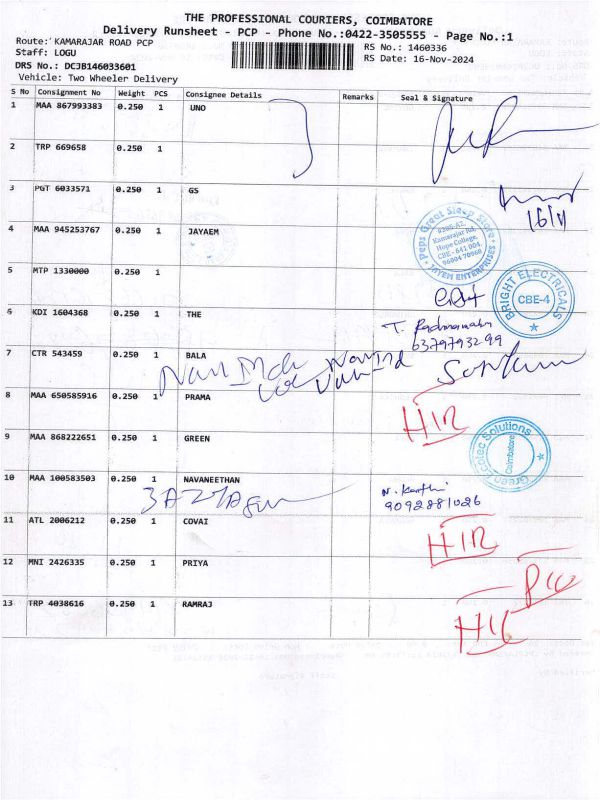 THE PROFESSIONAL COURIERS, COIMBATORE
Delivery Runsheet - PCP - Phone No.:0422-3505555 - Page No.:1
Route: KAMARAJAR ROAD PCP
RS No.: 1460336
Staff: LOGU
RS Date: 16-Nov-2024
DRS No.: DCJB146033601
Vehicle: Two Wheeler Delivery
S No Consignment No Weight PCS Consignee Details Remarks Seal & Signature
1 MAA 867993383 0.250 1 UNO
2 TRP 669658 0.250 1
3 PGT 6033571 0.250 1 GS
16/11
4 MAA 945253767 0.250 1 JAYAEM
Peps Great Sleep Store
Kamarajar Rd,
Hope College,
CBE - 641 004.
96004 70968
JAYEM ENTERPRISES
5 MTP 1330000 0.250 1
BRIGHT ELECTRICALS
CBE-4
6 KDI 1604368 0.250 1 THE
T.
6379793299
7 CTR 543459 0.250 1 BALA
8 MAA 650585916 0.250 1 PRAMA
9 MAA 868222651 0.250 1 GREEN
Solutions
Coimbatore
10 MAA 100583503 0.250 1 NAVANEETHAN
N. Karthi
9092881026
11 ATL 2006212 0.250 1 COVAI
12 MNI 2426335 0.250 1 PRIYA
13 TRP 4038616 0.250 1 RAMRAJ